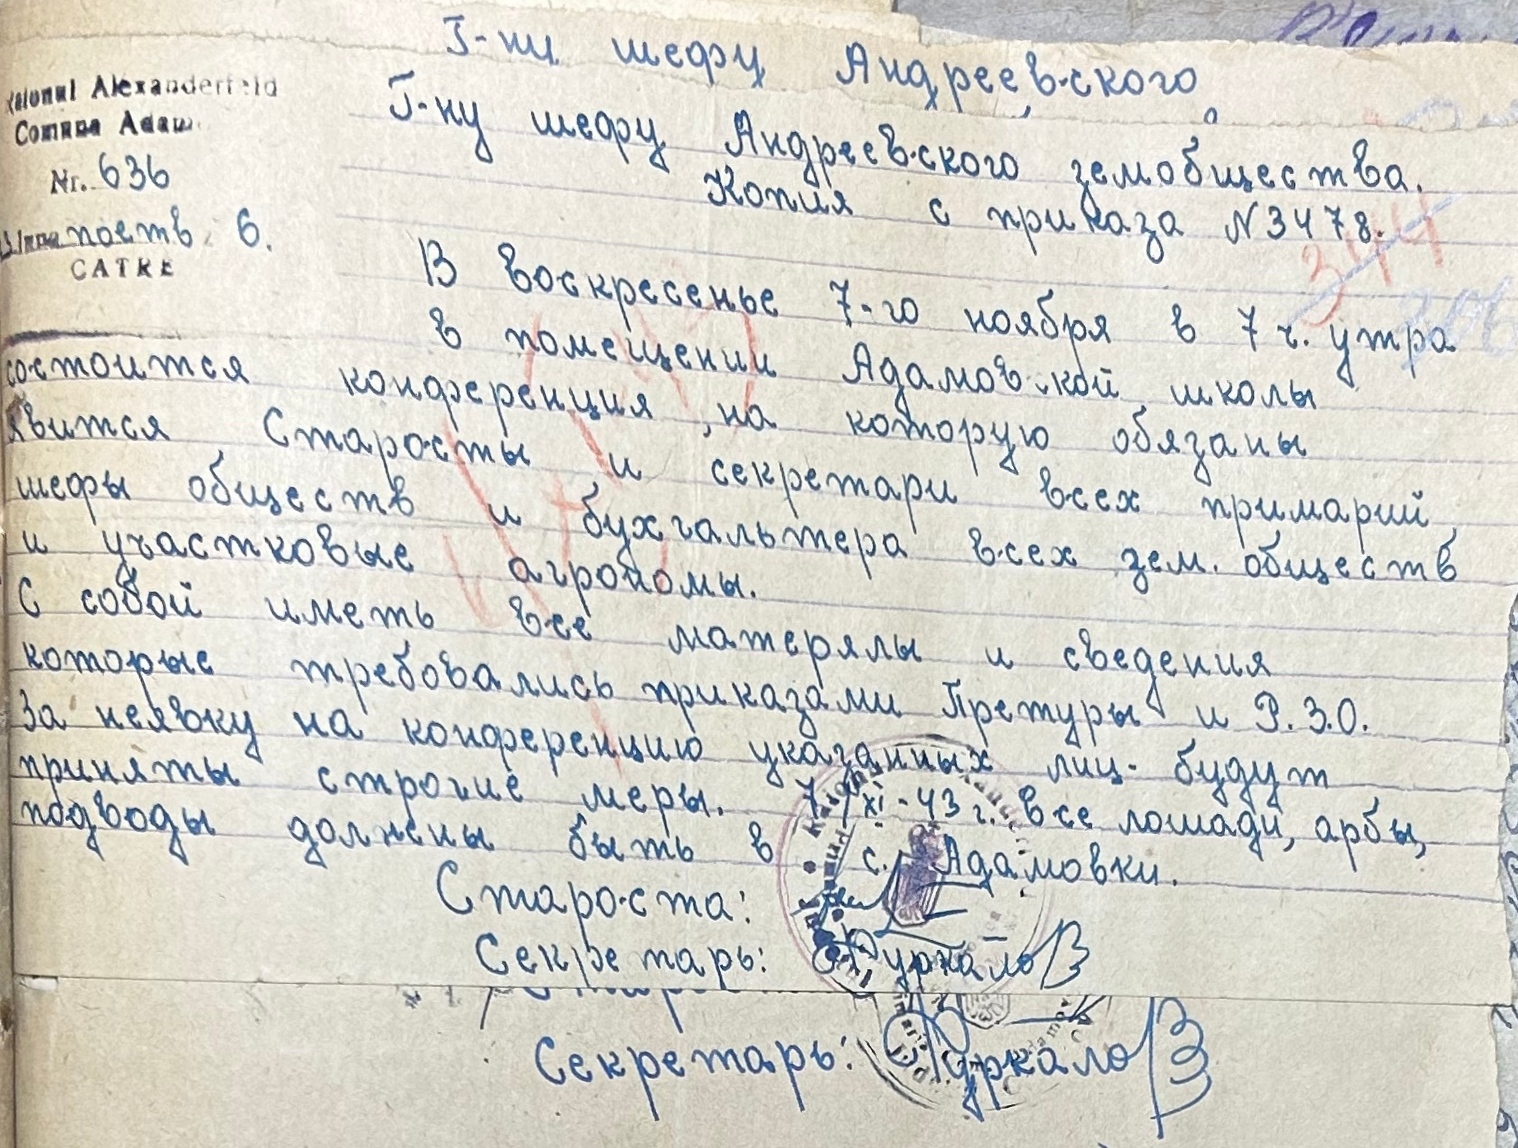 Г-ни шефу Андреевского
Raionul Alexanderfeld
Comuna Adam
Nr. 636
поетв 6.
CATRE
Г-ну шефу Андреевского земобщества.
Копия с приказа N 3478.
344
В воскресенье 7-го ноября в 7 ч. утра
в помещении Адамовской школы
состоится конференция, на которую обязаны
явится Старосты и секретари всех примарий,
шефы обществ и бухгальтера всех зем. обществ
и участковые агрономы.
С собой иметь все матерялы и сведения
которые требовались приказами Претуры и Р.З.О.
За неявку на конференцию указанных лиц будут
приняты строгие меры. 7/XI-43 г. все лошади, арбы,
подводы должены быть в с. Адамовки.
Староста:
Секретарь: Фуркало
Секретарь: Фуркало